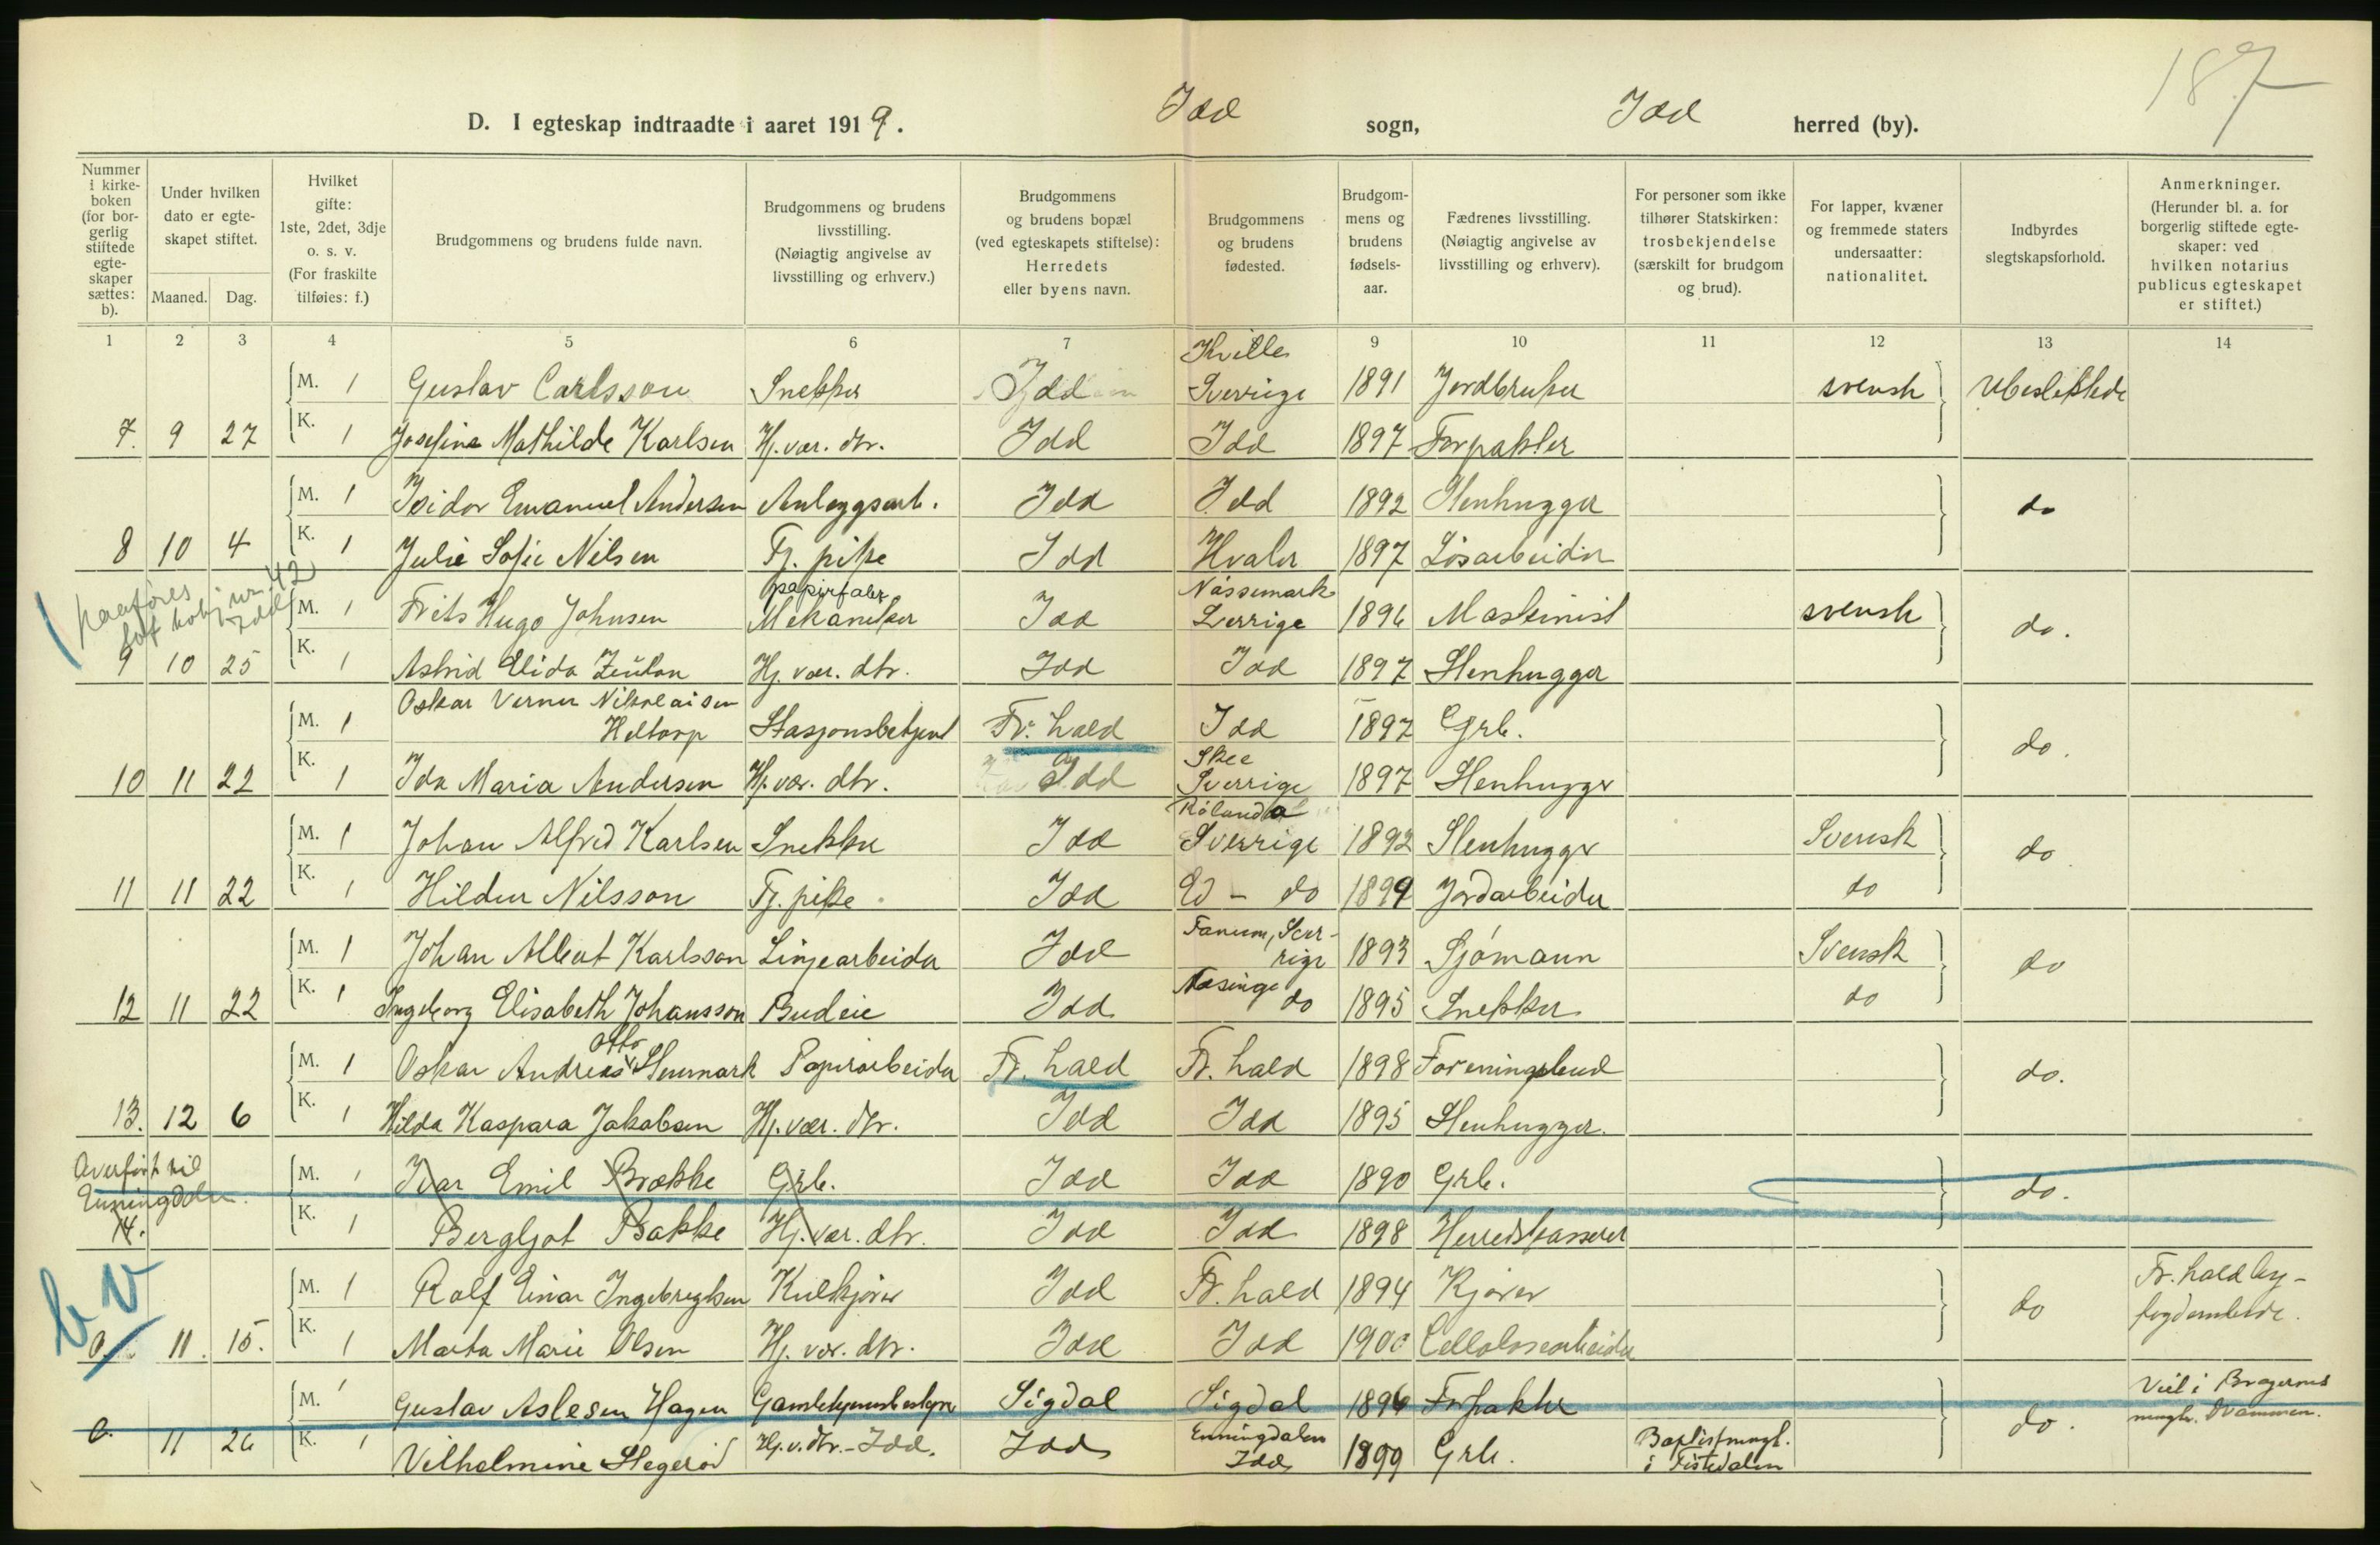 187
D. I egteskap indtraadte i aaret 1919. Idd sogn, Idd herred (by).
Nummer i kirkeboken (for borgerlig stiftede egteskaper sættes: b).
Under hvilken dato er egteskapet stiftet.
Maaned. Dag.
Hvilket gifte: 1ste, 2det, 3dje o. s. v. (For fraskilte tilføies: f.)
Brudgommens og brudens fulde navn.
Brudgommens og brudens livsstilling. (Nøiagtig angivelse av livsstilling og erhverv.)
Brudgommens og brudens bopæl (ved egteskapets stiftelse): Herredets eller byens navn.
Brudgommens og brudens fødested.
Brudgommens og brudens fødselsaar.
Fædrenes livsstilling. (Nøiagtig angivelse av livsstilling og erhverv).
For personer som ikke tilhører Statskirken: trosbekjendelse (særskilt for brudgom og brud).
For lapper, kvæner og fremmede staters undersaatter: nationalitet.
Indbyrdes slegtskapsforhold.
Anmerkninger. (Herunder bl. a. for borgerlig stiftede egteskaper: ved hvilken notarius publicus egteskapet er stiftet.)
1 2 3 4 5 6 7 9 10 11 12 13 14
Kville
M. 1 Gustav Carlsson Snekker Idd Sverrige 1891 Jordbruker svensk Ubeslektede
7. 9 27 K. 1 Josefine Mathilde Karlsen Hj. vær. dtr. Idd Idd 1897 Forpakter
M. 1 Isidor Emanuel Andersen Anleggsarb. Idd Idd 1892 Stenhugger do
8 10 4 K. 1 Julie Sofie Nilsen Tj. pike Idd Hvaler 1897 Løsarbeider
papirfabr. Nössemark
M. 1 Frits Hugo Johnsen Mekaniker Idd Sverrige 1896 Maskinist svensk do.
9 10 25 K. 1 Astrid Elida Hj. vær. dtr. Idd Idd 1897 Stenhugger
Oskar Verner Nikolaisen
M. 1 Heltorp Stasjonsbetjent Fr. hald Idd 1897 Grb. do.
Skee
10 11 22 K. 1 Ida Maria Andersen Hj. vær. dtr. Idd Sverrige 1897 Stenhugger
Rölanda
M. 1 Johan Alfred Karlsen Snekker Idd Sverrige 1892 Stenhugger Svensk do
11 11 22 K. 1 Hildur Nilsson Tj. pike Idd Ed - do 1899 Jordarbeider do
M. 1 Johan Albert Karlsson Linjearbeider Idd Tanum, Sverrige 1893 Sjömann Svensk do
12 11 22 K. 1 Ingeborg Elisabeth Johansson Budeie Idd Næsinge do 1895 Snekker do
Otto
M. 1 Oskar Andreas Stenmark Papirarbeider Fr. hald Fr. hald 1898 Foreningsbud do.
13. 12 6 K. 1 Hilda Kaspara Jakobsen Hj. vær. dtr. Idd Idd 1895 Stenhugger.
Overført til Enningdalen.
M. 1 Ivar Emil Brække Grb. Idd Idd 1890 Grb. do.
14. K. 1 Bergljot Bakke Hj. vær. dtr. Idd Idd 1898 Herredskasserer
b v
M. 1 Rolf Einar Ingebregtsen Kulkjører Idd Fr. hald 1894 Kjører do Fr. hald by-
11. 15. K. 1 Marta Marie Olsen Hj. vær. dtr. Idd Idd 1900 Cellolosearbeider fogdembede.
M. 1 Gustav Aslesen Hagen Gamlehjemsbestyrer Sigdal Sigdal 1896 Forpakter do. Viet i Bragernes
Enningdalen Baptistmengh. mengh. Drammen.
11 26 K. 1 Vilhelmine Stegerød Hj. v. dtr. - Idd. Idd Idd 1899 Grb. i Tistedalen